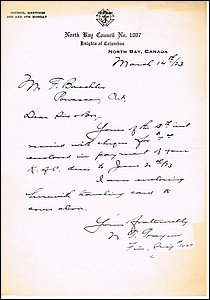 COUNCIL MEETINGS
2ND AND 4TH MONDAY
North Bay Council No. 1007
Knights of Columbus
NORTH BAY, CANADA
March 14th/23
Mr F.
Ont.
Dear Sir & Bro.
Yours of the 12th inst
received with cheque for
enclosed in payment of your
K. of C. dues to June 30/23
I am enclosing
herewith travelling card to
cover also.
Yours fraternally